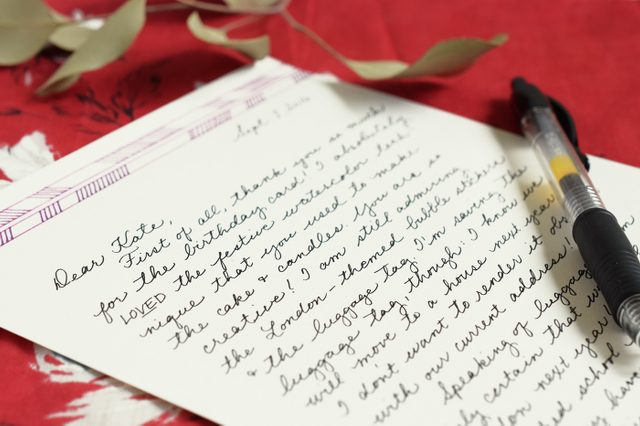 Sept. 2, 2016
Dear Kate,
First of all, thank you so much
for the birthday card! I absolutely
LOVED the festive watercolor tech-
nique that you used to make
the cake & candles. You are so
creative! I am still admiring
the London-themed bubble stickers
& the luggage tag. I'm saving the
luggage tag, though. I know we
will move to a house next year
I don't want to render it obs
with our current address!
Speaking of luggage
certain that w
don next year!
school